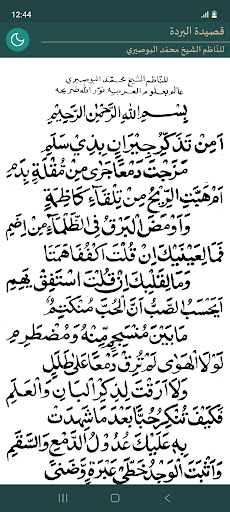 12:44
قصيدة البردة
للنّاظم الشيخ محمّد البوصيري
للناظم الشيخ محمد البوصيري
عالم بعلوم العربية نور الله ضريحه
بِسْمِ اللهِ الرَّحْمٰنِ الرَّحِيْمِ
اَمِنْ تَذَكُّرِ جِيْرَانٍ بِذِيْ سَلَمِ
مَزَجْتَ دَمْعًا جَرٰى مِنْ مُقْلَةٍ بِدَمِ
اَمْ هَبَّتِ الرِّيْحُ مِنْ تِلْقَاءِ كَاظِمَةٍ
وَاَوْمَضَ الْبَرْقُ فِى الظَّلْمَاءِ مِنْ اِضَمِ
فَمَا لِعَيْنَيْكَ اِنْ قُلْتَ اكْفُفَا هَمَتَا
وَمَا لِقَلْبِكَ اِنْ قُلْتَ اسْتَفِقْ يَهِمِ
اَيَحْسَبُ الصَّبُّ اَنَّ الْحُبَّ مُنْكَتِمٌ
مَا بَيْنَ مُنْسَجِمٍ مِنْهُ وَمُضْطَرِمِ
لَوْلَا الْهَوٰى لَمْ تُرِقْ دَمْعًا عَلٰى طَلَلٍ
وَلَا اَرِقْتَ لِذِكْرِ الْبَانِ وَالْعَلَمِ
فَكَيْفَ تُنْكِرُ حُبًّا بَعْدَ مَا شَهِدَتْ
بِهِ عَلَيْكَ عُدُوْلُ الدَّمْعِ وَالسَّقَمِ
وَاَثْبَتَ الْوَجْدُ خَطَّيْ عَبْرَةٍ وَضَنًى